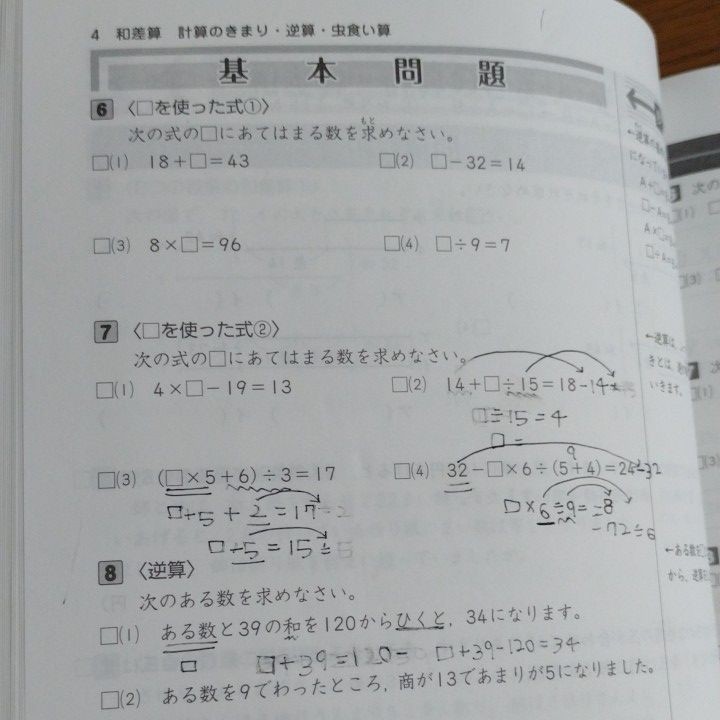 4 和差算 計算のきまり・逆算・虫食い算
基本問題
6 〈□を使った式①〉
もと
次の式の□にあてはまる数を求めなさい。
□(1) 18+□=43
□(2) □-32=14
□(3) 8×□=96
□(4) □÷9=7
7 〈□を使った式②〉
次の式の□にあてはまる数を求めなさい。
□(1) 4×□-19=13
□(2) 14+□÷15=18-14
□÷15=4
□=
□(3) (□×5+6)÷3=17
□÷5+2=17÷2
□÷5=15÷5
9
□(4) 32-□×6÷(5+4)=24-32
□×6÷9=-8
-72÷6
8 〈逆算〉
次のある数を求めなさい。
□(1) ある数と39の和を120からひくと，34になります。
□ □+39=120- □+39-120=34
□(2) ある数を9でわったところ，商が13であまりが5になりました。
←逆算の
にな
A+□
□-A=
A×□
□÷A=
←逆算は
きとは，
いきます。
←ある数を
から，逆算